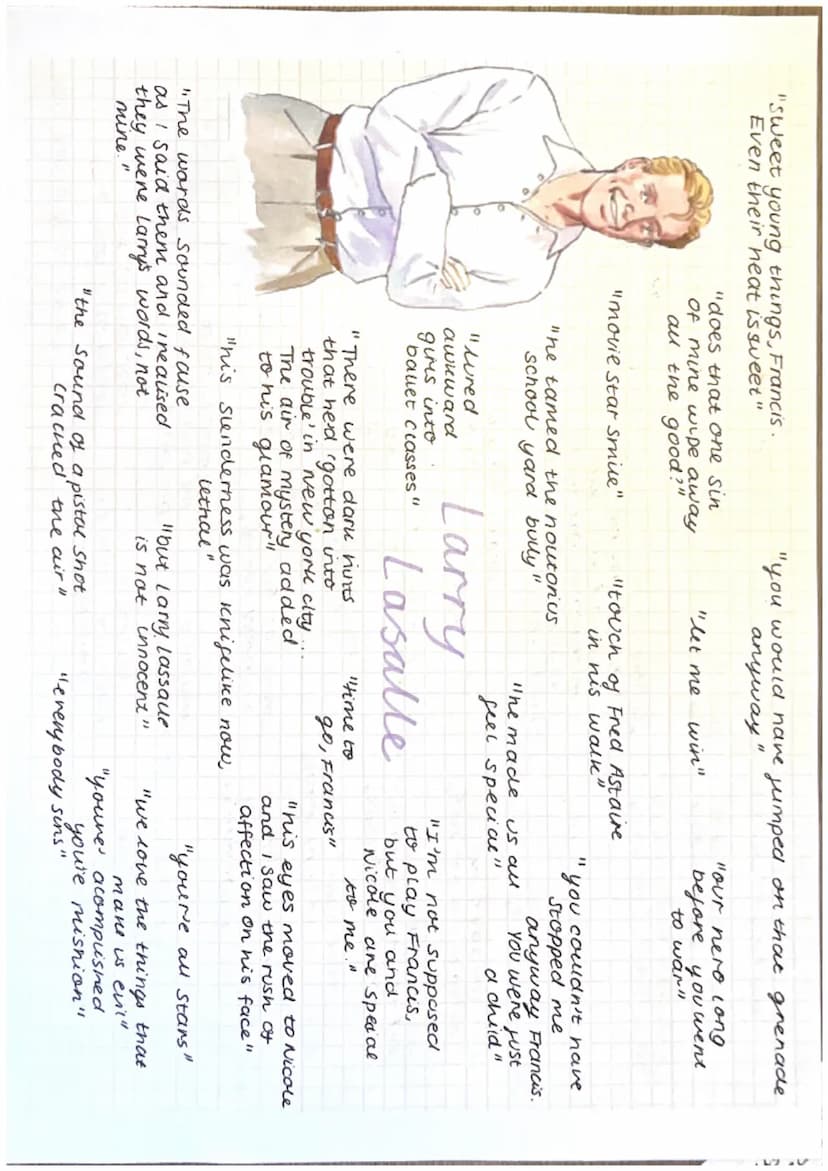 "sweet young things, Francis.
Even their heat is sweet"
"you would have jumped on that grenade
anyway"
"does that one sin
of mine wipe away
all the good?"
"let me win"
"our hero long
before you went
to war"
"movie star smile"
"touch of Fred Astaire
in his walk"
"you couldn't have
stopped me
anyway Francis.
You were just
a child"
"he tamed the noutorius
school yard bully"
"he made us all
feel special"
"lured
awkward
girls into
ballet classes"
Larry
Lasalle
"I'm not supposed
to play Francis,
but you and
Nicole are special
to me."
"There were dark hints
that he'd 'gotten into
trouble' in New york city...
The air of mystery added
to his glamour"
"time to
go, Francis"
"his eyes moved to Nicole
and I saw the rush of
affection on his face"
"his slenderness was knifelike now,
lethal"
"The words sounded false
as I said them and I realised
they were Larry's words, not
mine."
"but Larry Lassalle
is not innocent"
"you're all stars"
"we love the things that
make us evil"
"the sound of a pistol shot
cracked the air"
"youve acomplished
you're mishion"
"everybody sins"